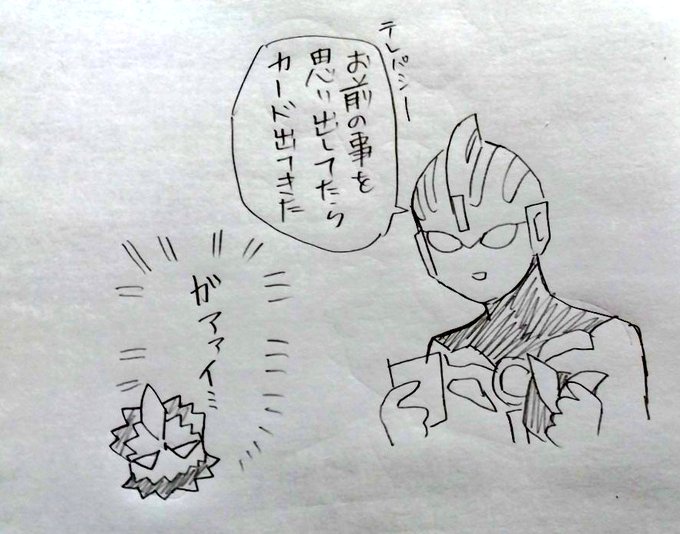 テレパシー
お前の事を
思い出してたら
カード出てきた
がァァイ